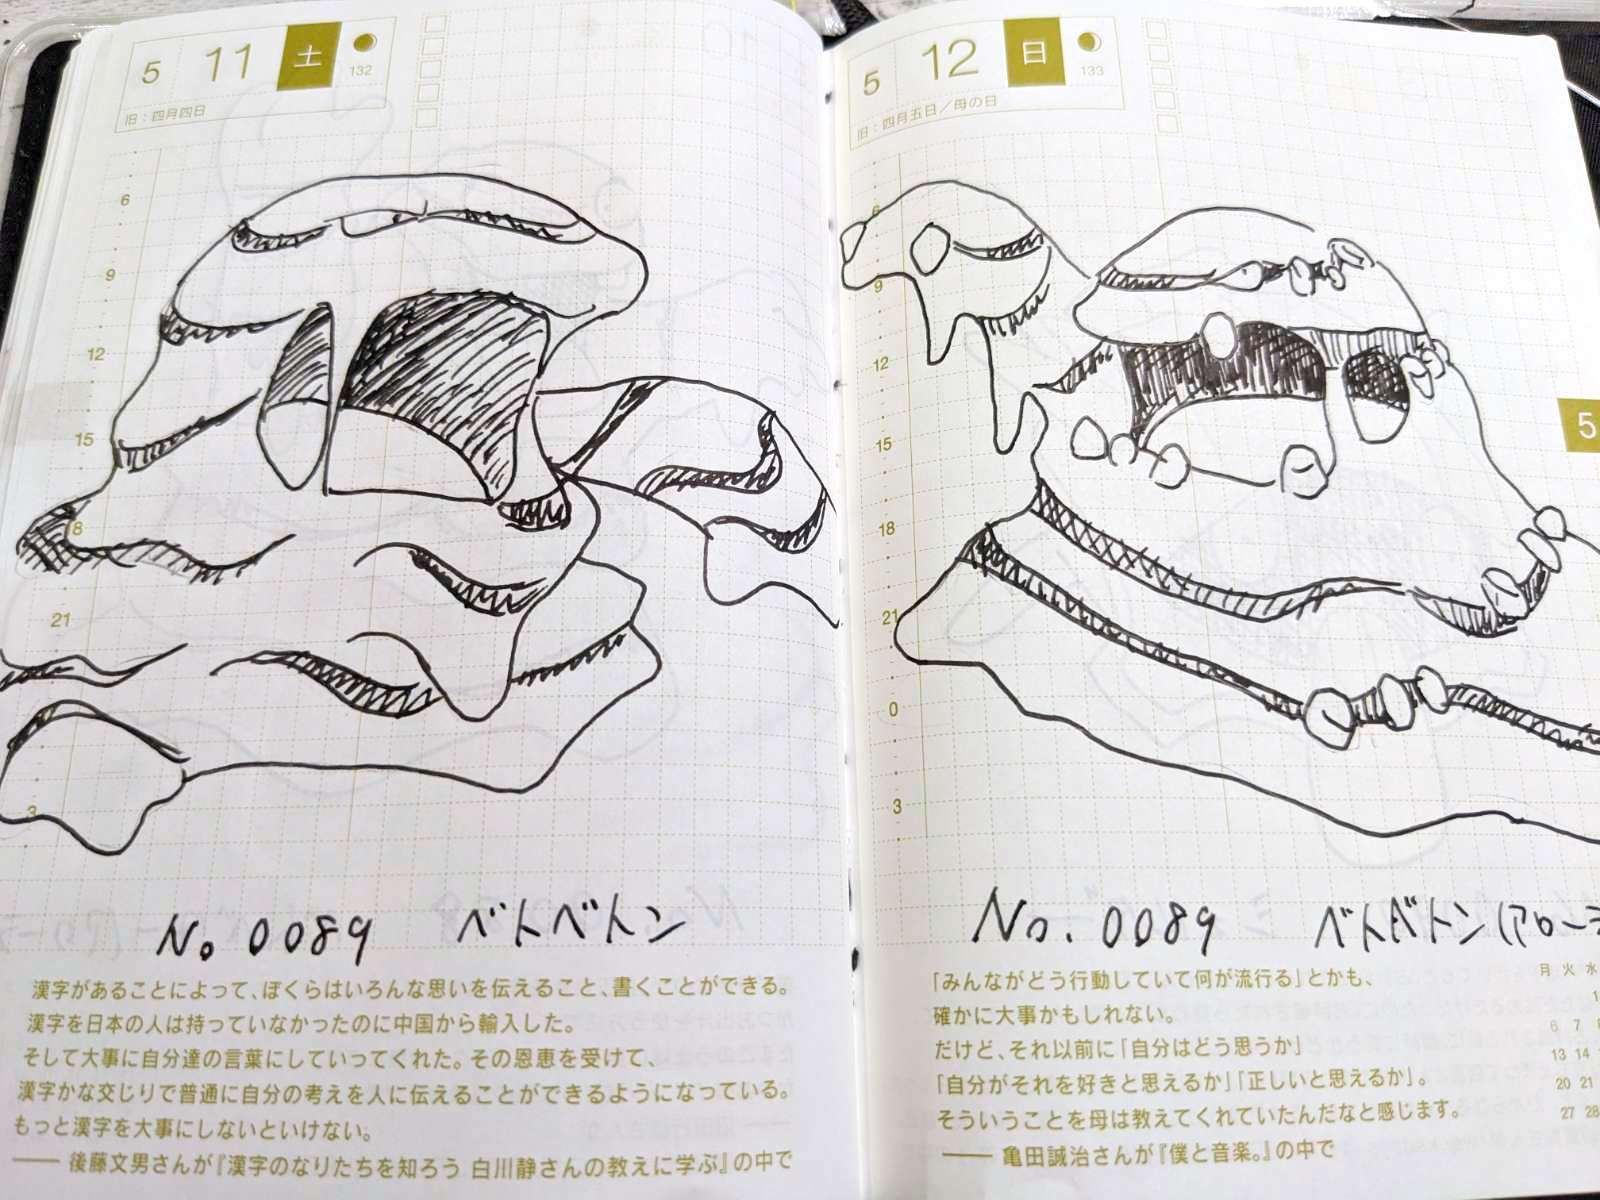 5 11 土
132
旧：四月四日
6
9
12
15
18
21
3
No 0089 ベトベトン
漢字があることによって、ぼくらはいろんな思いを伝えること、書くことができる。
漢字を日本の人は持っていなかったのに中国から輸入した。
そして大事に自分達の言葉にしていってくれた。その恩恵を受けて、
漢字かな交じりで普通に自分の考えを人に伝えることができるようになっている。
もっと漢字を大事にしないといけない。
―― 後藤文男さんが『漢字のなりたちを知ろう 白川静さんの教えに学ぶ』の中で
5 12 日
133
旧：四月五日／母の日
6
9
12
15
18
21
0
3
5
No. 0089 ベトベトン(アローラ
「みんながどう行動していて何が流行る」とかも、
確かに大事かもしれない。
だけど、それ以前に「自分はどう思うか」
「自分がそれを好きと思えるか」「正しいと思えるか」。
そういうことを母は教えてくれていたんだなと感じます。
―― 亀田誠治さんが『僕と音楽。』の中で
月 火 水
6 7
13 14
20 21
27 28